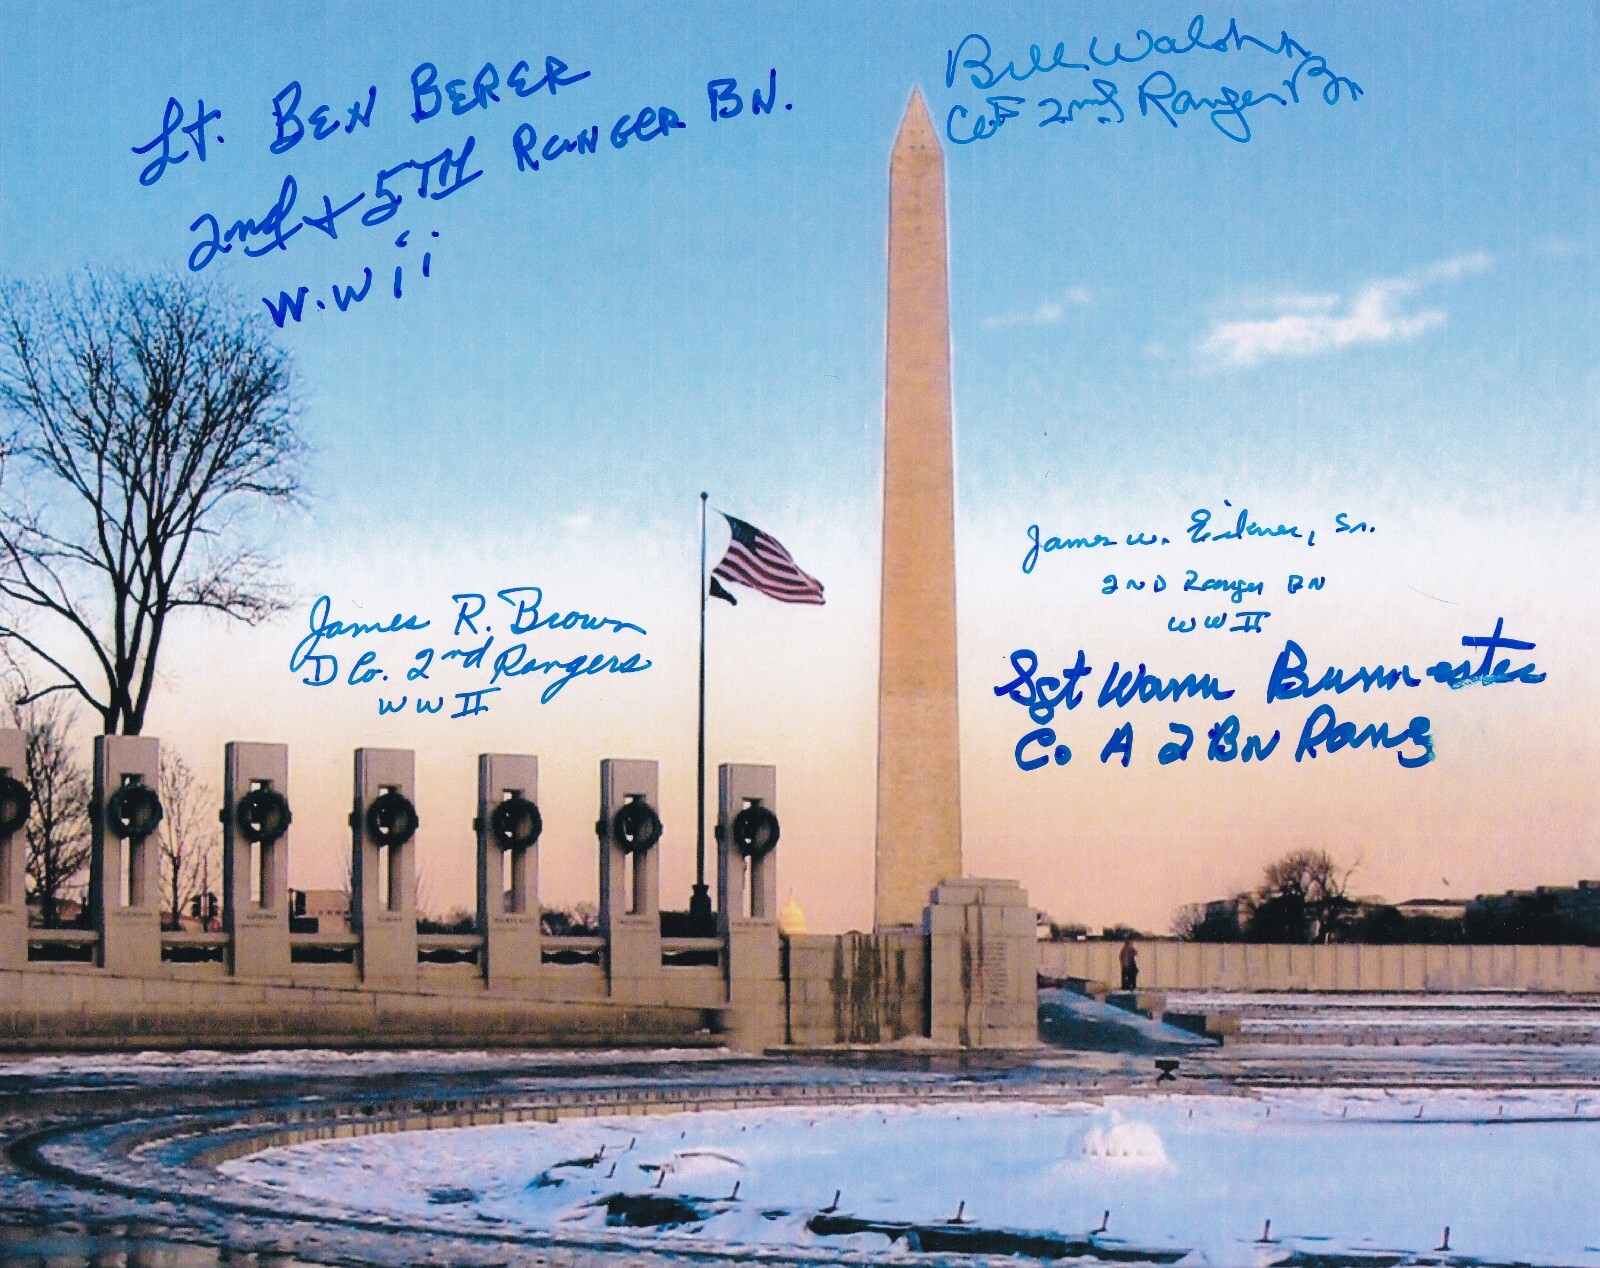 Lt. BEN BERER
2nd + 5TH RANGER BN.
W.W ii
Bill Walsh
Co F 2nd Ranger Bn
James W. Eikner, Sr.
2ND Ranger BN
WW II
James R. Brown
D Co. 2nd Rangers
WW II
Sgt Burmaster
Co A 2 BN Rang